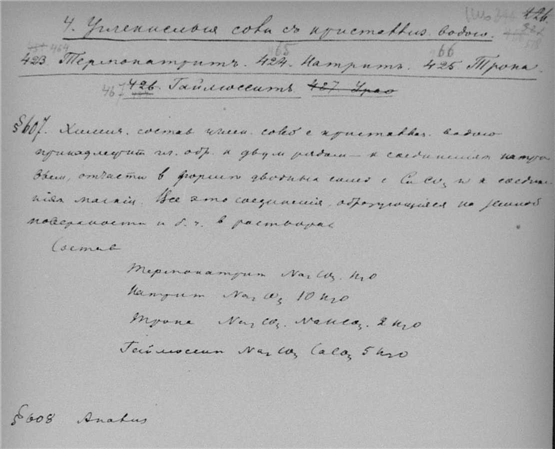 4. Углекислыя соли съ кристаллиз. водой. 426
423. Термонатритъ. 424. Натритъ. 425. Трона.
426. Гейлюсситъ 427. Урао
§607. Химич. состав углек. солей с кристаллиз. водою
принадлежит гл. обр. к двум рядам — к соединениям натро
выем, отчасти в форме двойных солей с CaCO3 и к соедине
ниям магния. Все это соединения, образующиеся на земной
поверхности и б. ч. в растворах
Состав
Термонатрит Na2CO3 H2O
Натрит Na2CO3 10 H2O
Трона Na2CO3. NaHCO3. 2 H2O
Гейлюссит Na2CO3 CaCO3 5 H2O
§608 Анализ